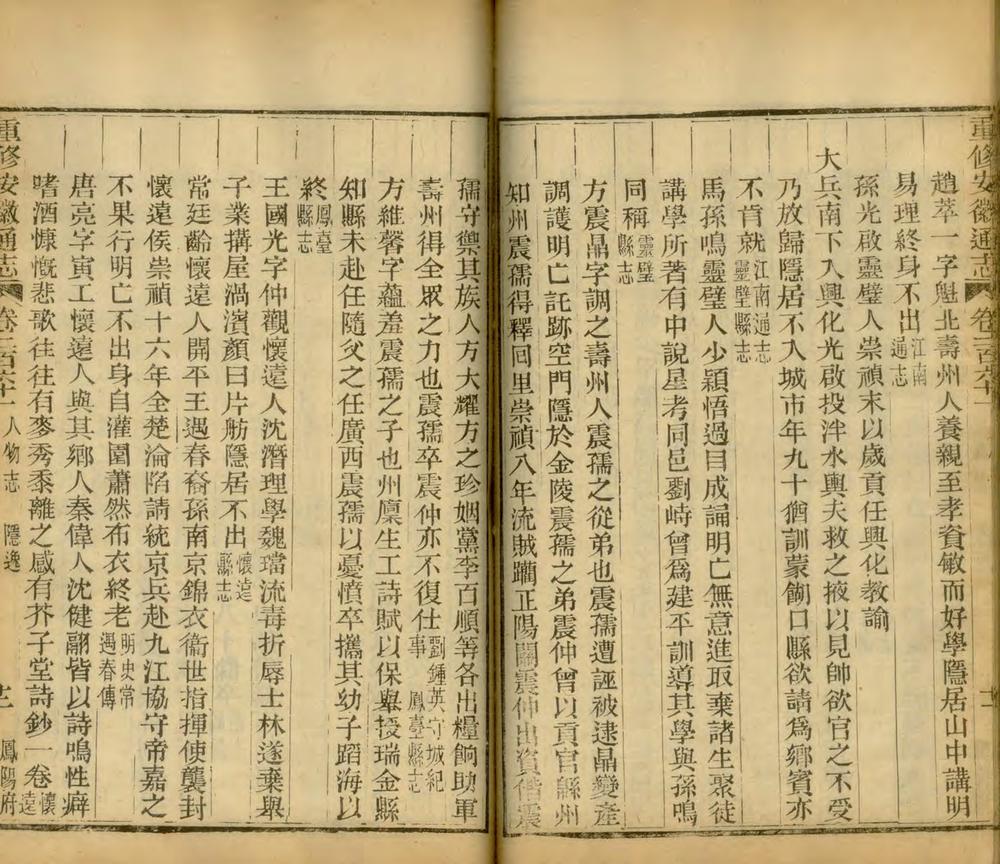 重修安徽通志 卷二百六十一
趙萃一字魁北壽州人養親至孝資敏而好學隱居山中講明
易理終身不出江南通志
孫光啟靈璧人崇禎末以歲貢任興化教諭
大兵南下入興化光啟投泮水輿夫救之掖以見帥欲官之不受
乃放歸隱居不入城市年九十猶訓蒙餬口縣欲請爲鄉賓亦
不肯就江南通志靈璧縣志
馬孫鳴靈璧人少穎悟過目成誦明亡無意進取棄諸生聚徒
講學所著有中說星考同邑劉峙曾爲建平訓導其學與孫鳴
同稱靈璧縣志
方震鼎字調之壽州人震孺之從弟也震孺遭誣被逮鼎變產
調護明亡託跡空門隱於金陵震孺之弟震仲曾以貢官緜州
知州震孺得釋回里崇禎八年流賊躪正陽關震仲出資偕震
孺守禦其族人方大耀方之珍姻黨李百順等各出糧餉助軍
壽州得全眾之力也震孺卒震仲亦不復仕劉鍾英守城紀事 鳳臺縣志
方維馨字蘊羞震孺之子也州廩生工詩賦以保舉授瑞金縣
知縣未赴任隨父之任廣西震孺以憂憤卒攜其幼子蹈海以
終鳳臺縣志
王國光字仲觀懷遠人沈潛理學魏璫流毒折辱士林遂棄舉
子業搆屋渦濱顏曰片舫隱居不出懷遠縣志
常延齡懷遠人開平王遇春裔孫南京錦衣衞世指揮使襲封
懷遠侯崇禎十六年全楚淪陷請統京兵赴九江協守帝嘉之
不果行明亡不出身自灌園蕭然布衣終老明史常遇春傳
唐亮字寅工懷遠人與其鄉人秦偉人沈健翮皆以詩鳴性癖
嗜酒慷慨悲歌往往有麥秀黍離之感有芥子堂詩鈔一卷懷遠
重修安徽通志 卷二百六十一 人物志 隱逸 鳳陽府